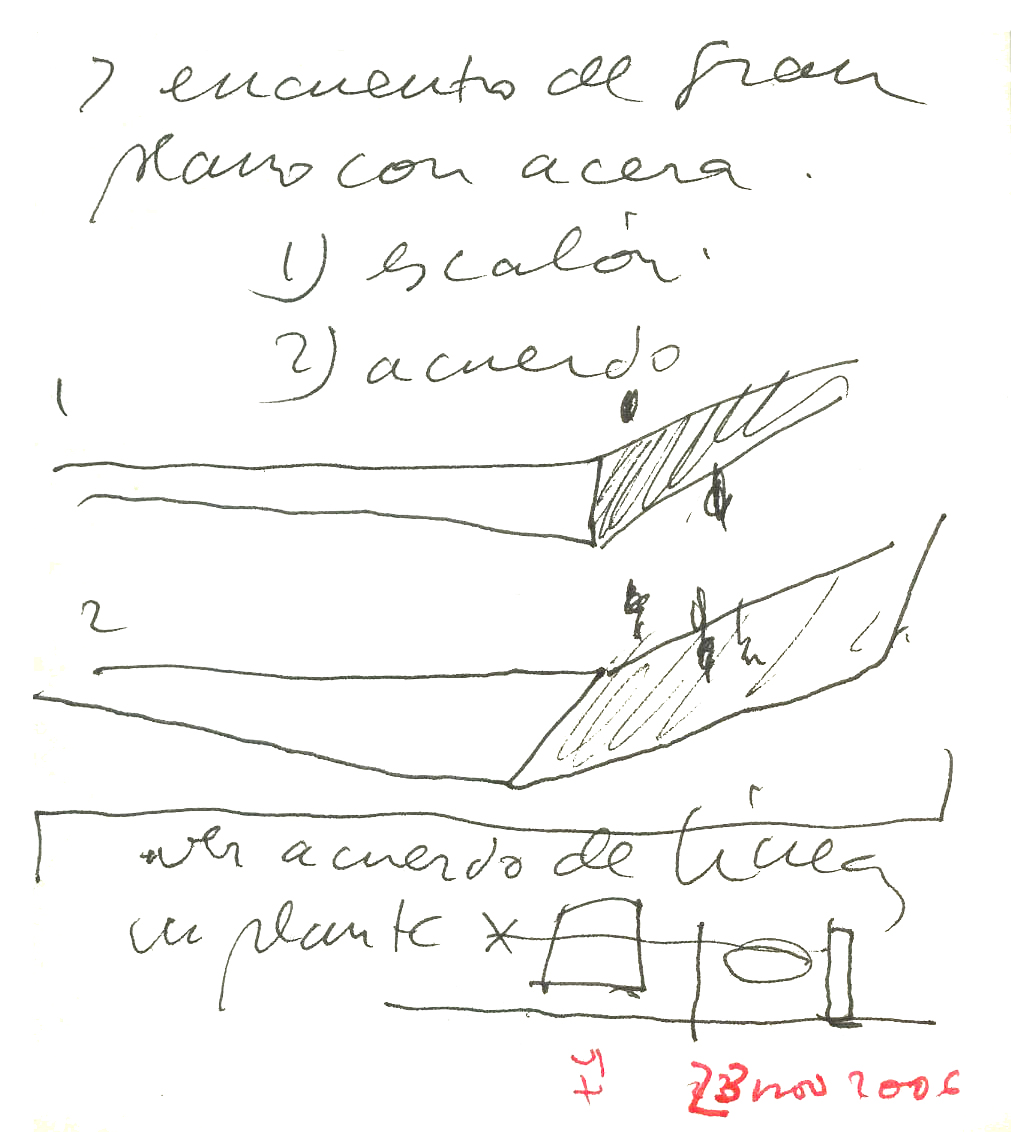 > encuentro de gran
plano con acera.
1) escalón.
2) acuerdo
1
2
ver acuerdo de línea
en planta
23 nov 2006